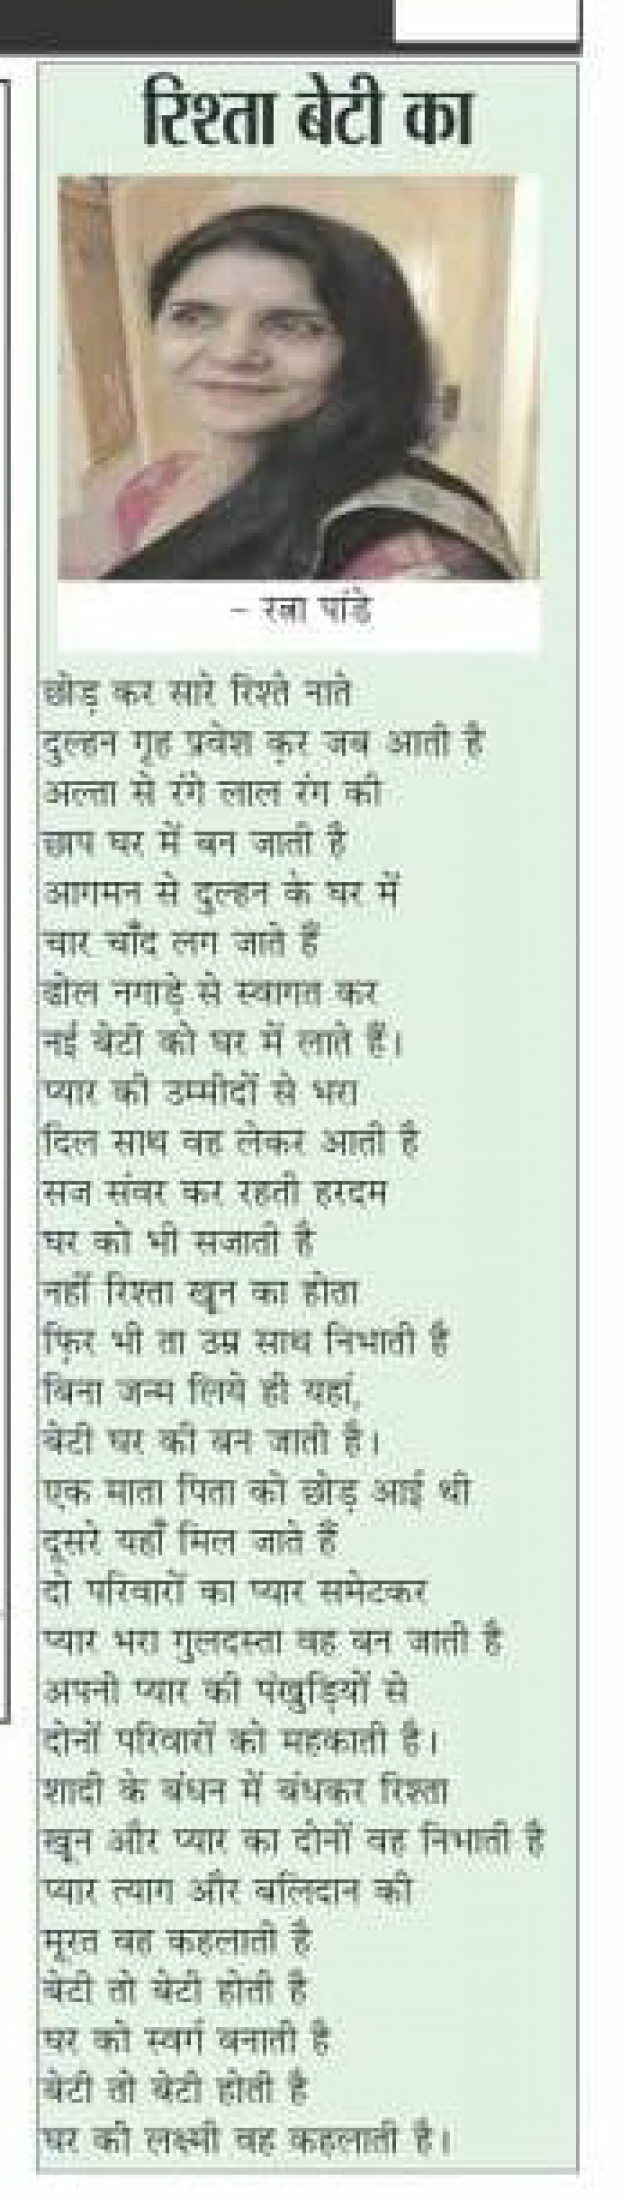 रिश्ता बेटी का
- रत्ना पांडे
छोड़ कर सारे रिश्ते नाते
दुल्हन गृह प्रवेश क़र जब आती है
अल्ता से रंगे लाल रंग की
छाप घर में बन जाती है
आगमन से दुल्हन के घर में
चार चाँद लग जाते हैं
ढोल नगाड़े से स्वागत कर
नई बेटी को घर में लाते हैं।
प्यार की उम्मीदों से भरा
दिल साथ वह लेकर आती है
सज संवर कर रहती हरदम
घर को भी सजाती है
नहीं रिश्ता खून का होता
फ़िर भी ता उम्र साथ निभाती है
बिना जन्म लिये ही यहां,
बेटी घर की बन जाती है।
एक माता पिता को छोड़ आई थी
दूसरे यहाँ मिल जाते हैं
दो परिवारों का प्यार समेटकर
प्यार भरा गुलदस्ता वह बन जाती है
अपनी प्यार की पंखुड़ियों से
दोनों परिवारों को महकाती है।
शादी के बंधन में बंधकर रिश्ता
खून और प्यार का दोनों वह निभाती है
प्यार त्याग और बलिदान की
मूरत वह कहलाती है
बेटी तो बेटी होती है
घर को स्वर्ग बनाती है
बेटी तो बेटी होती है
घर की लक्ष्मी वह कहलाती है।